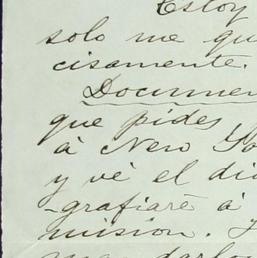 Estoy
solo me qu
cisamente.
Documen
que pides
á New Yo
y vé el dia
-grafiaré á
mision.